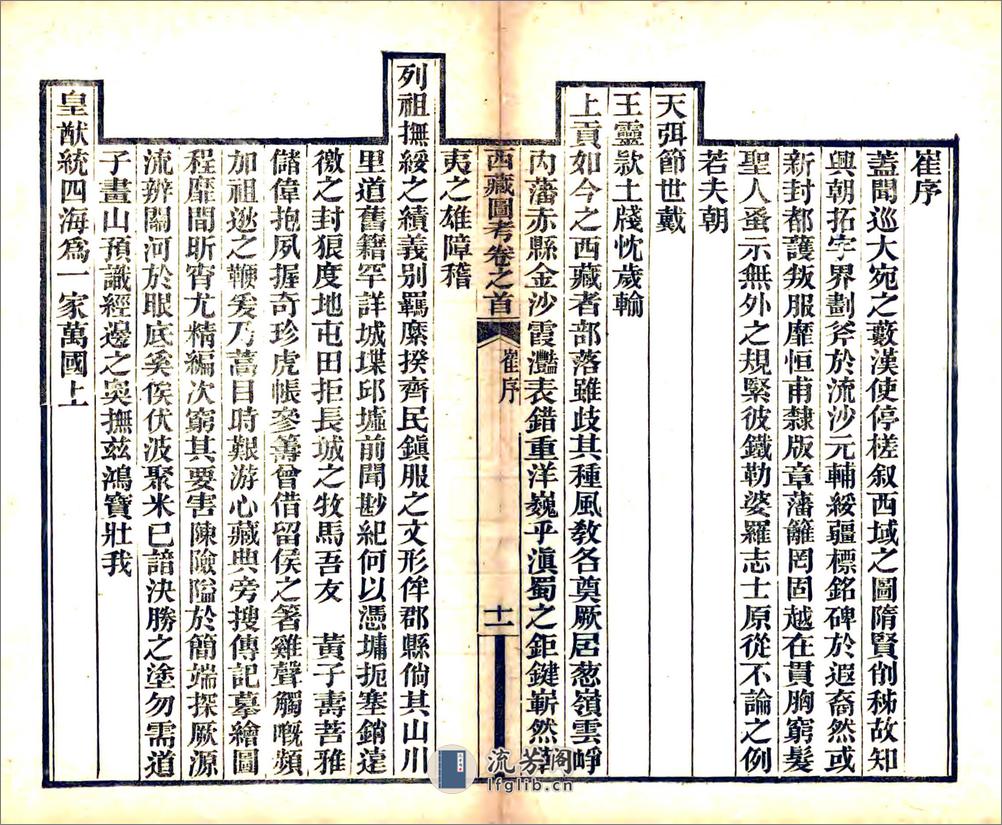 崔序
蓋聞巡大宛之藪漢使停槎叙西域之圖隋賢削秭故知
興朝拓宇界劃斧於流沙元輔綏疆標銘碑於遐裔然或
新封都護叛服靡恒甫隸版章藩籬罔固越在貫胸窮髮
聖人蚤示無外之規緊彼鐵勒婆羅志士原從不論之例
若夫朝
天弭節世戴
王靈款土牋忱歲輸
上貢如今之西藏者部落雖歧其種風敎各奠厥居葱嶺雲崢
內藩赤縣金沙霞灩表錯重洋巍乎滇蜀之鉅鍵嶄然華
西藏圖考卷之首 崔序 十一
夷之雄障稽
列祖撫綏之績義別羈縻揆齊民鎭服之文形侔郡縣倘其山川
里道舊籍罕詳城堞邱墟前聞尠紀何以憑墉扼塞銷遠
徼之封狠度地屯田拒長城之牧馬吾友 黃子壽菩雅
儲偉抱夙握奇珍虎帳參籌曾借留侯之箸雞聲觸嘅頻
加祖逖之鞭爰乃蒿目時艱游心藏典旁搜傳記摹繪圖
程靡間昕宵尤精編次窮其要害陳險隘於簡端探厥源
流辨關河於眼底奚俟伏波聚米已諳決勝之塗勿需道
子畫山預識經邊之奧撫兹鴻寶壯我
皇猷統四海爲一家萬國上
流芳阁
lfglib.cn